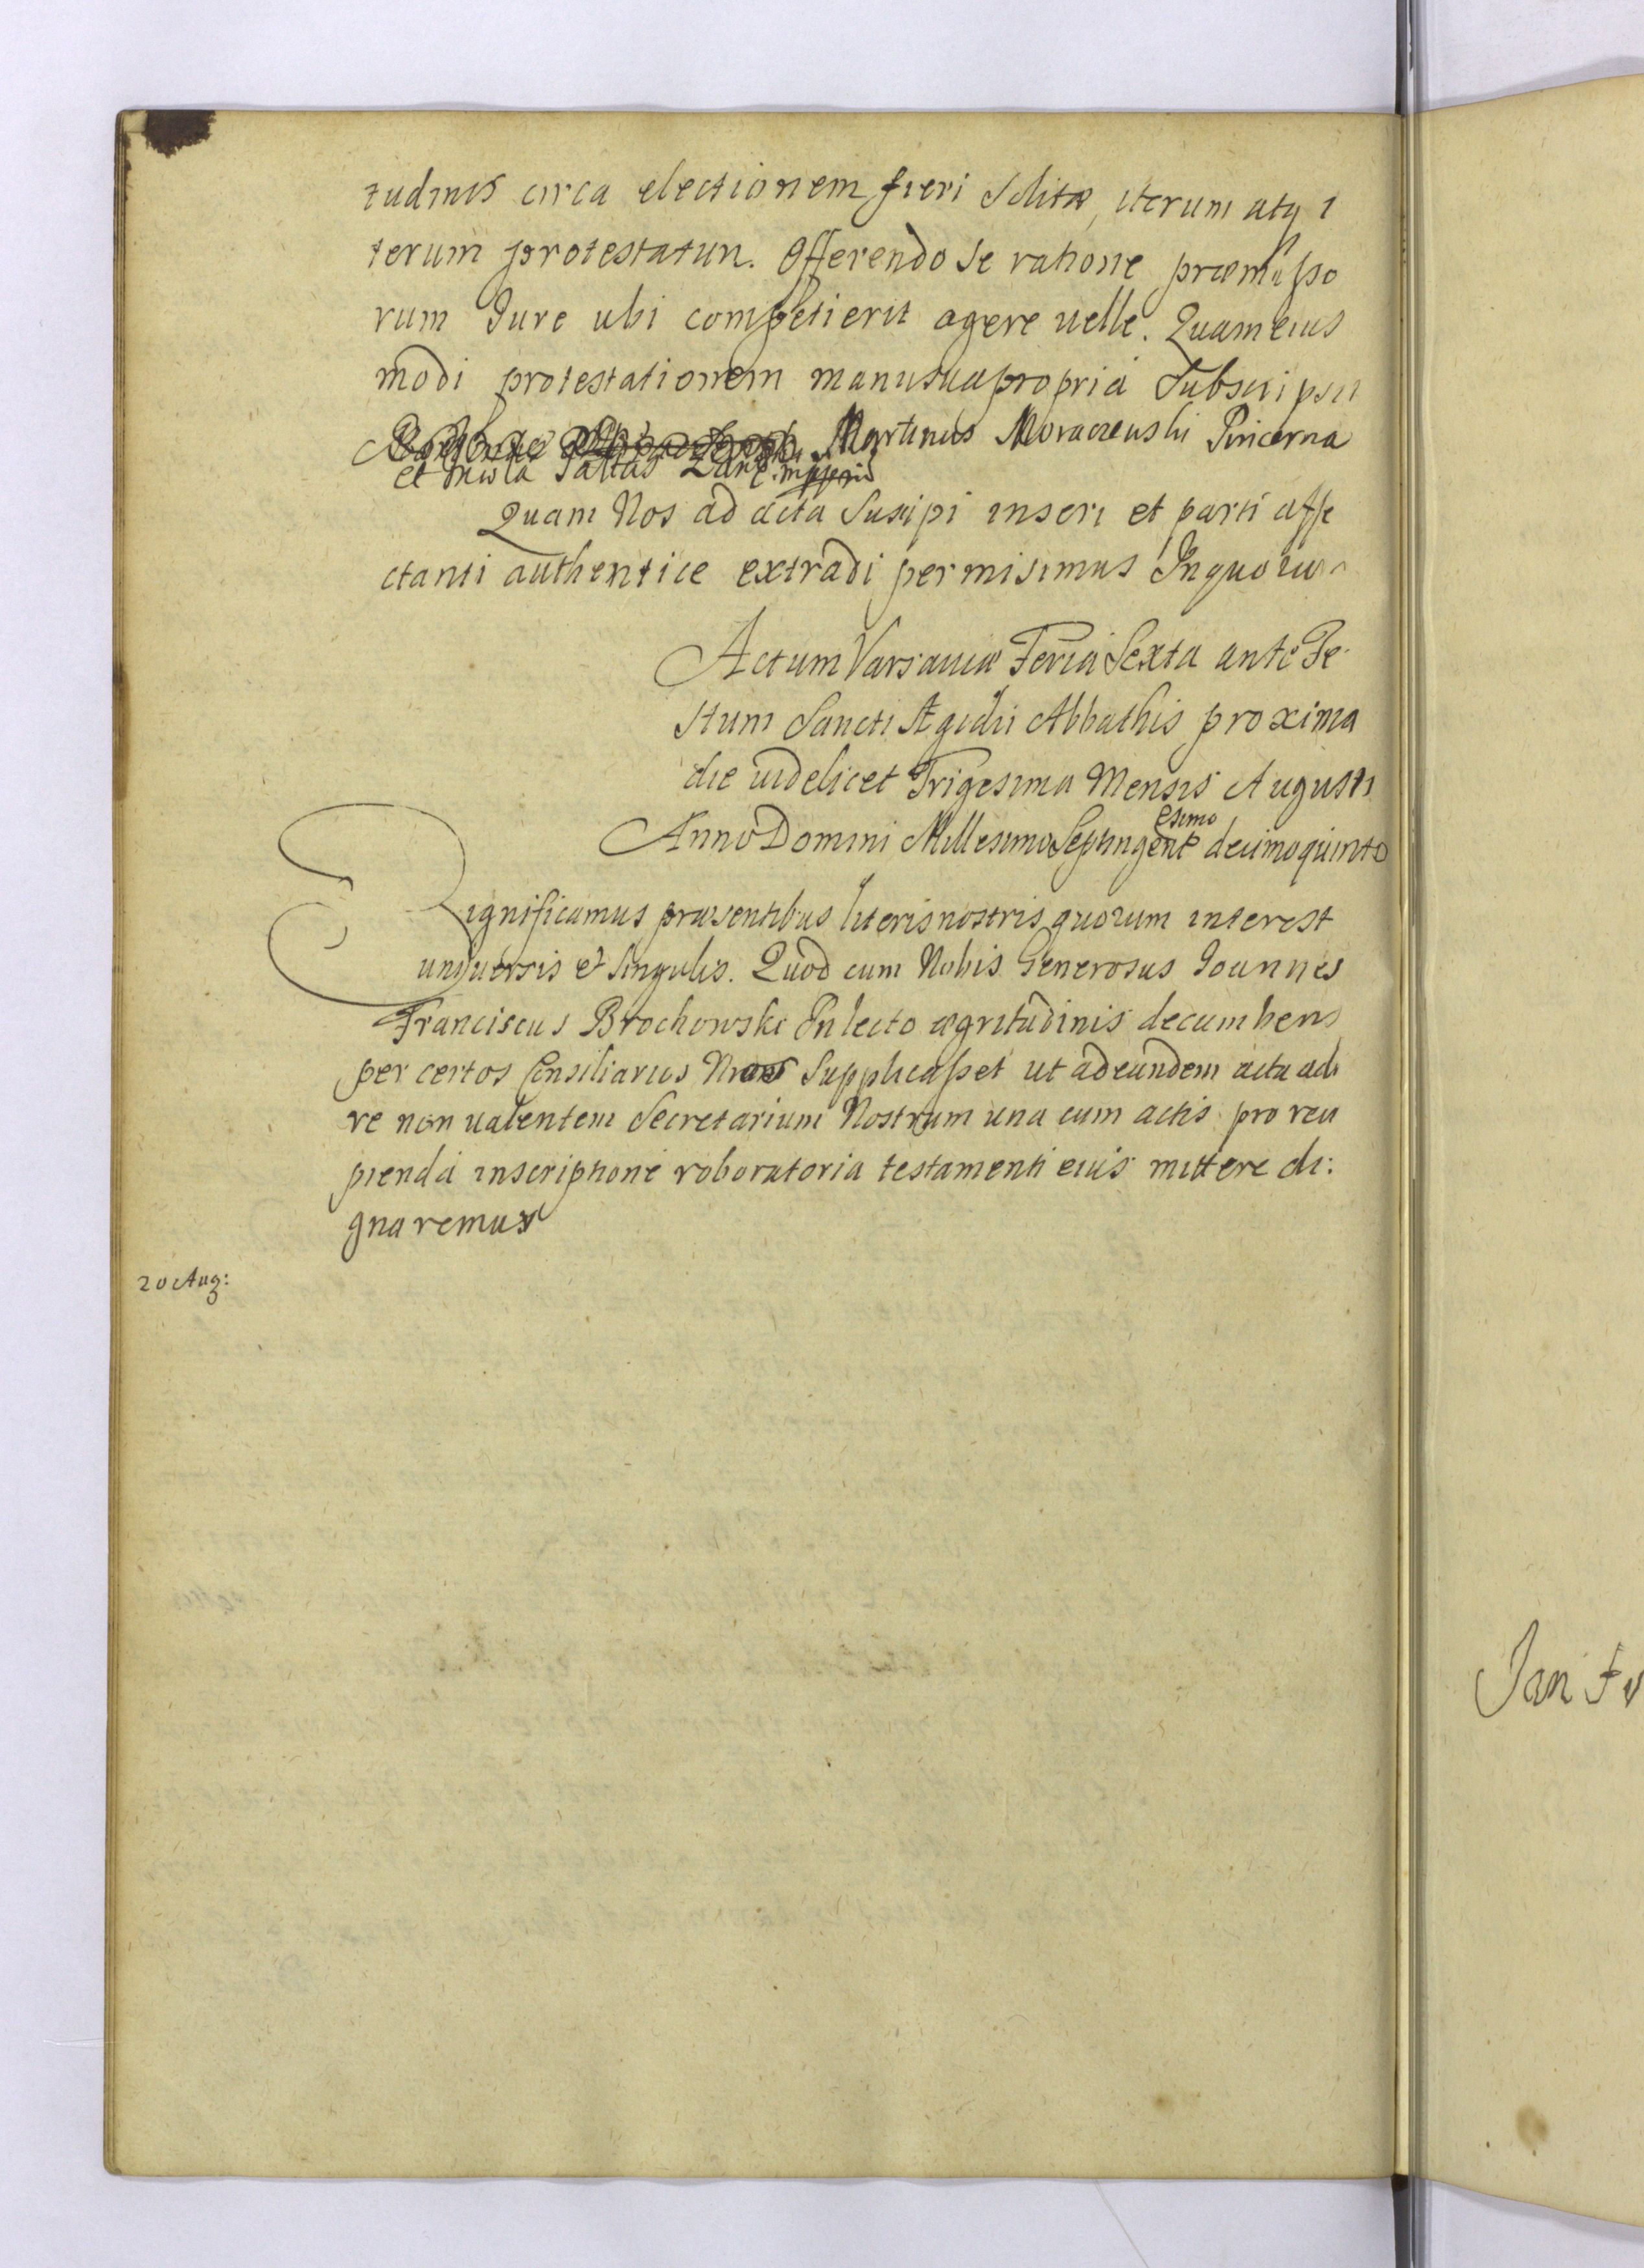 tudinis circa electionem fieri Solitæ, iterum atq i
terum protestatur. Offerendo se ratione præmisso
rum Jure ubi competierit agere uelle. Quam eius
modi protestationem manu sua propria Subscripsit
Martinus Pincerna
et
Quam Nos ad acta Suscipi inseri et parti affe
ctanti authentice extradi permisimus In quorum
Actum Varsauiæ Feria Sexta ante Fe
stum Sancti Ægidii Abbathis proxima
die uidelicet Trigesima Mensis Augusti
Anno Domini Millesimo Septingentesimo decimoquinto
Significamus præsentibus literis nostris quorum interest
uniuersis et singulis. Quod cum Nobis Generosus Joannes
Franciscus Brochowski In lecto ægritudinis decumbens
per certos Consiliarios Nros Supplicasset ut ad eundem acta adi
re non ualentem Secretarium Nostrum una cum actis pro reci
pienda inscriptione roboratoria testamenti eius mittere di:
gnaremur
20 Aug:
Jan Fr